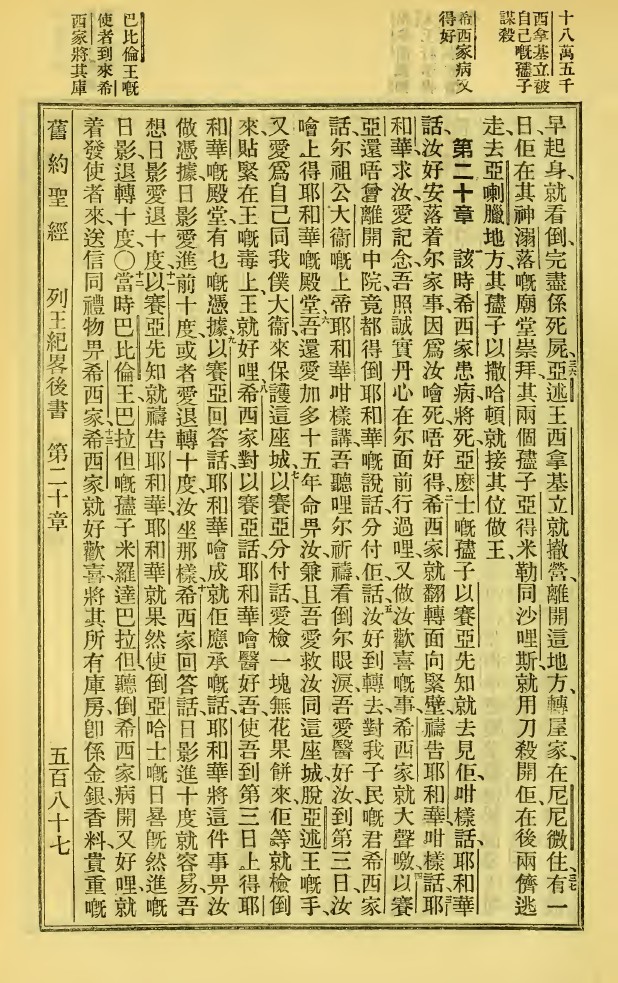 十八萬五千
西拿基立被
自己嘅孻子
謀殺
希西家病又
得好
巴比倫王嘅
使者到來希
西家將其庫
早起身、就看倒完盡係死屍、三六亞述王西拿基立就撤營、離開這地方、轉屋家、在尼尼微住、三七有一
日佢在其神溺落嘅廟堂崇拜、其兩個孻子亞得米勒、同沙哩斯、就用刀殺開佢、在後兩儕逃
走去亞喇臘地方、其孻子以撒哈頓、就接其位做王、
第二十章 一該時希西家患病將死、亞麼士嘅孻子以賽亞先知就去見佢、咁樣話、耶和華
話、汝好安落着尔家事、因爲汝噲死唔好得、二希西家就翻轉面向緊壁、禱告耶和華咁樣話、三耶
和華、求汝愛記念吾照誠實丹心在尔面前行過哩、又做汝歡喜嘅事、希西家就大聲噭、四以賽
亞還唔曾離開中院、竟都得倒耶和華嘅說話、分付佢話、五汝好到轉去對我子民嘅君希西家
話、尔祖公大衞嘅上帝耶和華咁樣講、吾聽哩尔祈禱、看倒尔眼淚、吾愛醫好汝、到第三日汝
噲上得耶和華嘅殿堂、六吾還愛加多十五年命畀汝、兼且吾愛救汝同這座城脫亞述王嘅手、
又愛爲自己同我僕大衞來保護這座城、七以賽亞分付話、愛檢一塊無花果餅來、佢等就檢倒
來、貼緊在王嘅毒上、王就好哩、八希西家對以賽亞話、耶和華噲醫好吾、使吾到第三日上得耶
和華嘅殿堂、有乜嘅憑據、九以賽亞回答話、耶和華噲成就佢應承嘅話、耶和華將這件事畀汝
做憑據、日影愛進前十度、或者愛退轉十度、汝坐那樣、十希西家回答話、日影進十度就容易、吾
想日影愛退十度、十一以賽亞先知就禱告耶和華、耶和華就果然使倒亞哈士嘅日晷、旣然進嘅
日影退轉十度、〇十二當時巴比倫王巴拉但嘅孻子米羅達巴拉但、聽倒希西家病開又好哩、就
着發使者來送信同禮物畀希西家、十三希西家就好歡喜、將其所有庫房、卽係金銀、香料、貴重嘅
舊約聖經 列王紀畧後書 第二十章 五百八十七